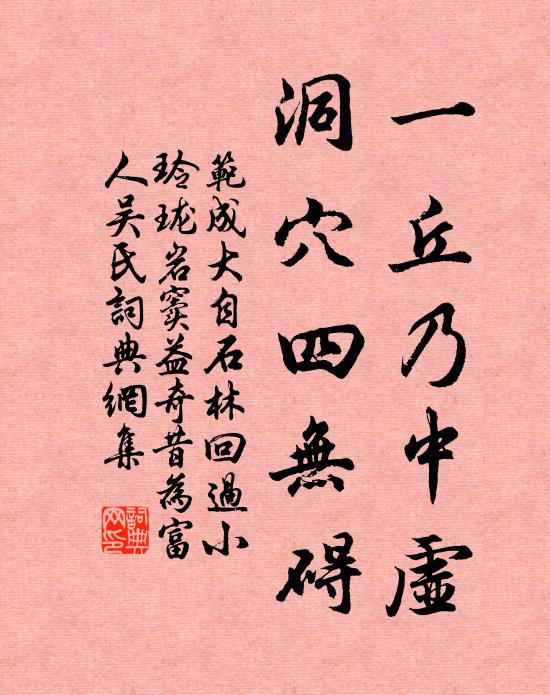 一丘乃中虛
洞穴四無碍
範成大自石林回過小
玲珑岩窦益奇昔為富
人吴氏詞典網集
詞典
网印